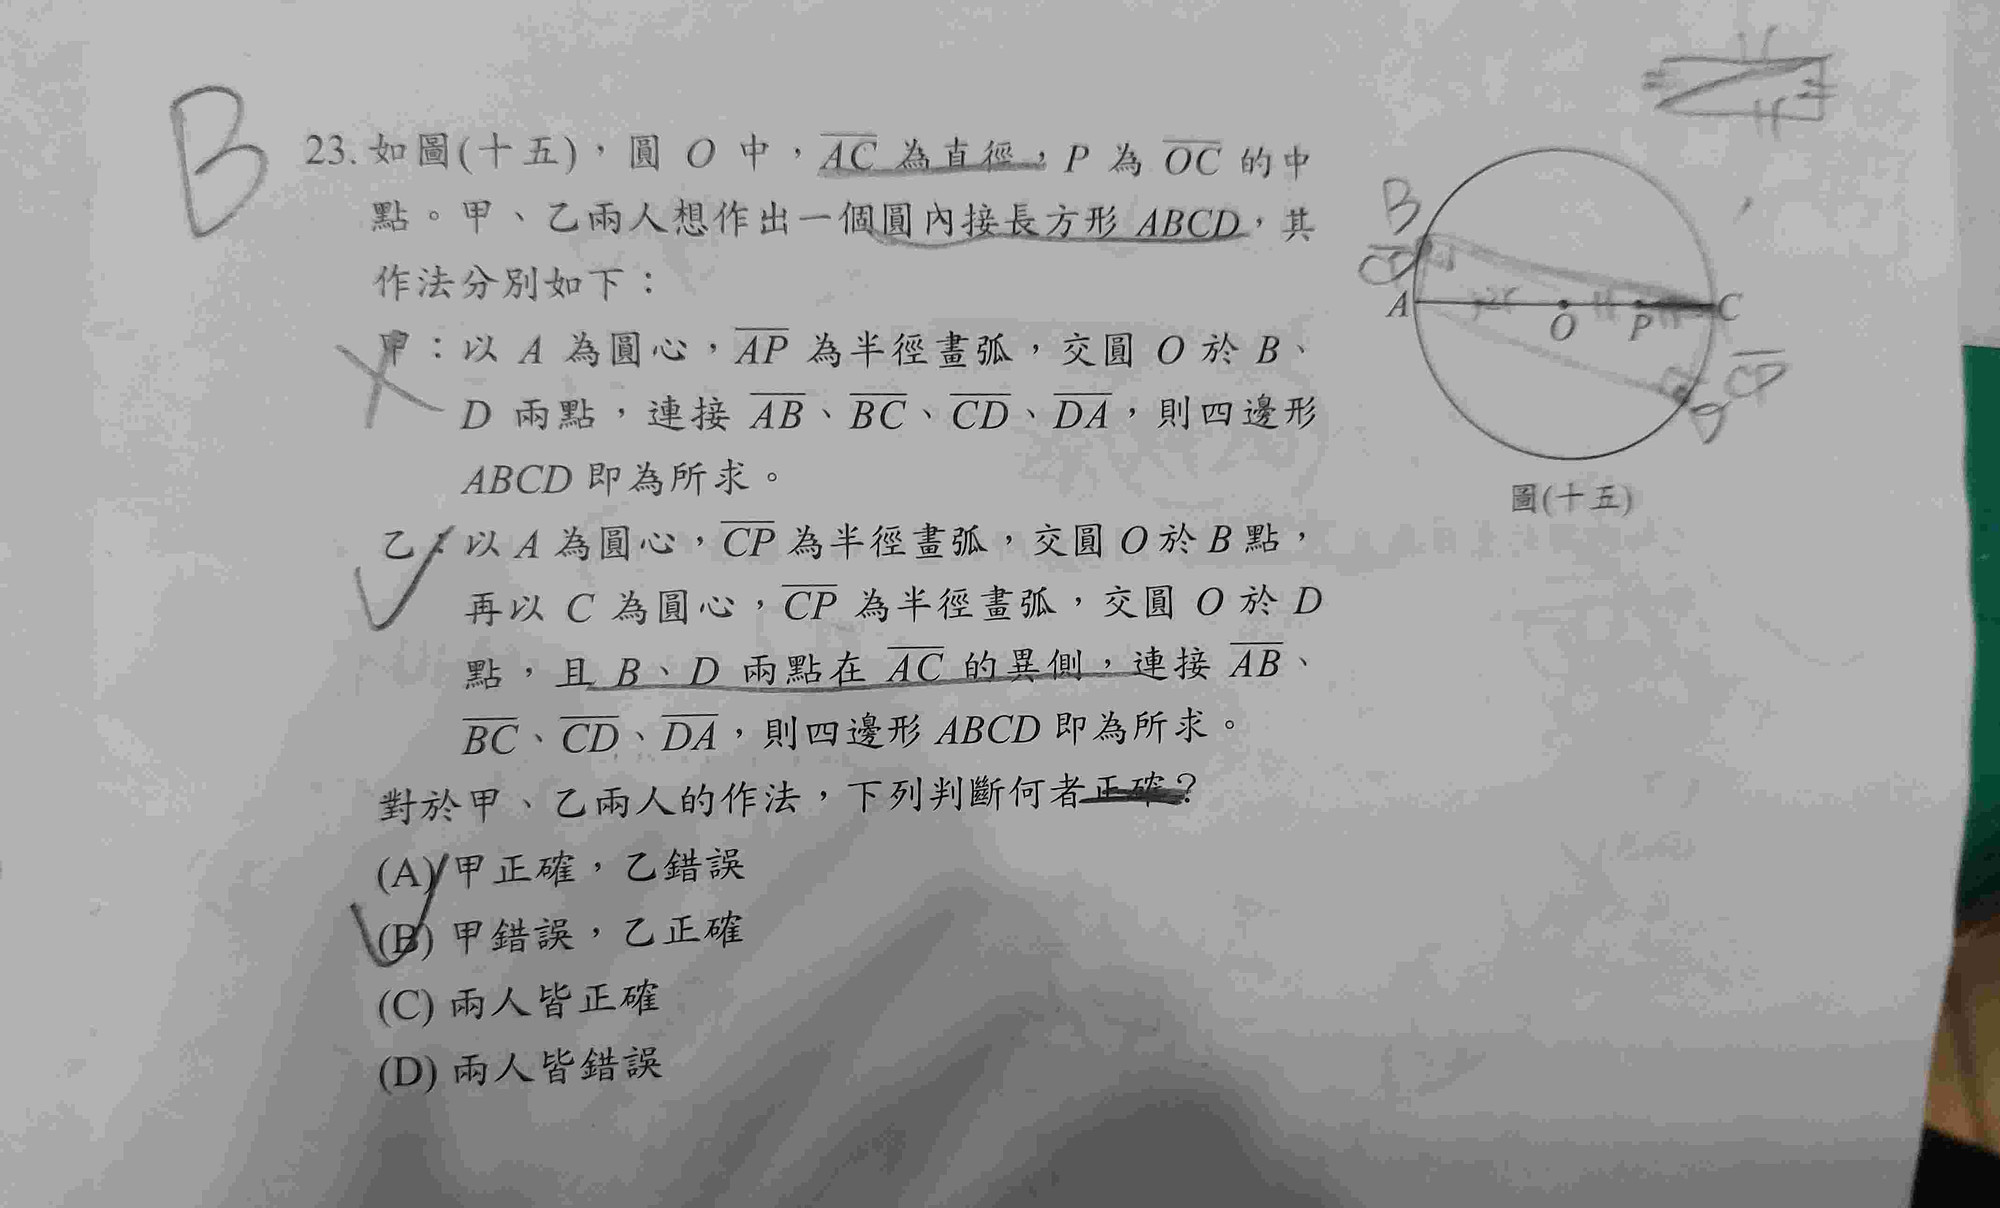 B
23. 如圖(十五)，圓 O 中，AC 為直徑，P 為 OC 的中
點。甲、乙兩人想作出一個圓內接長方形 ABCD，其
作法分別如下：
甲：以 A 為圓心，AP 為半徑畫弧，交圓 O 於 B、
D 兩點，連接 AB、BC、CD、DA，則四邊形
ABCD 即為所求。
乙：以 A 為圓心，CP 為半徑畫弧，交圓 O 於 B 點，
再以 C 為圓心，CP 為半徑畫弧，交圓 O 於 D
點，且 B、D 兩點在 AC 的異側，連接 AB、
BC、CD、DA，則四邊形 ABCD 即為所求。
對於甲、乙兩人的作法，下列判斷何者正確？
(A) 甲正確，乙錯誤
(B) 甲錯誤，乙正確
(C) 兩人皆正確
(D) 兩人皆錯誤
B
A
O
P
C
CP
D
圖(十五)